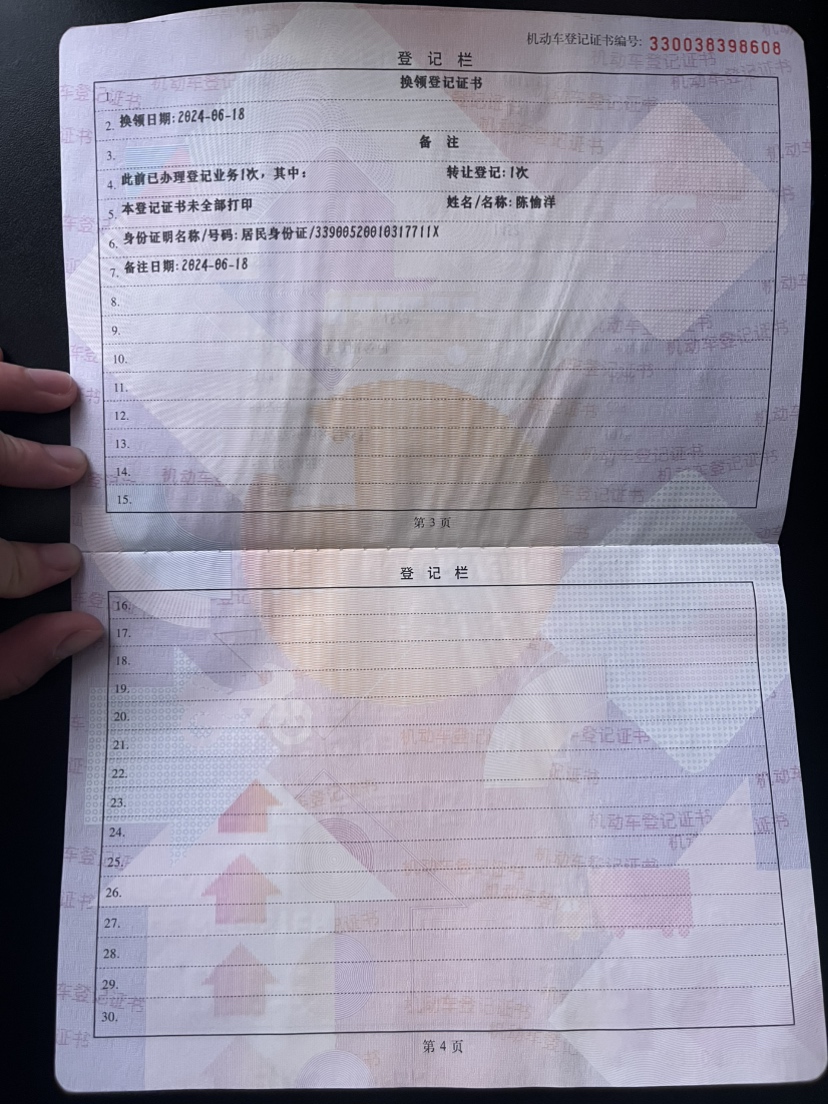 机动车登记证书编号: 330038398608
登 记 栏
1. 换领登记证书
2. 换领日期:2024-06-18
3. 备 注
4. 此前已办理登记业务1次，其中: 转让登记:1次
5. 本登记证书未全部打印 姓名/名称:陈愉洋
6. 身份证明名称/号码:居民身份证/33900520010317711X
7. 备注日期:2024-06-18
8.
9.
10.
11.
12.
13.
14.
15.
第 3 页
登 记 栏
16.
17.
18.
19.
20.
21.
22.
23.
24.
25.
26.
27.
28.
29.
30.
第 4 页